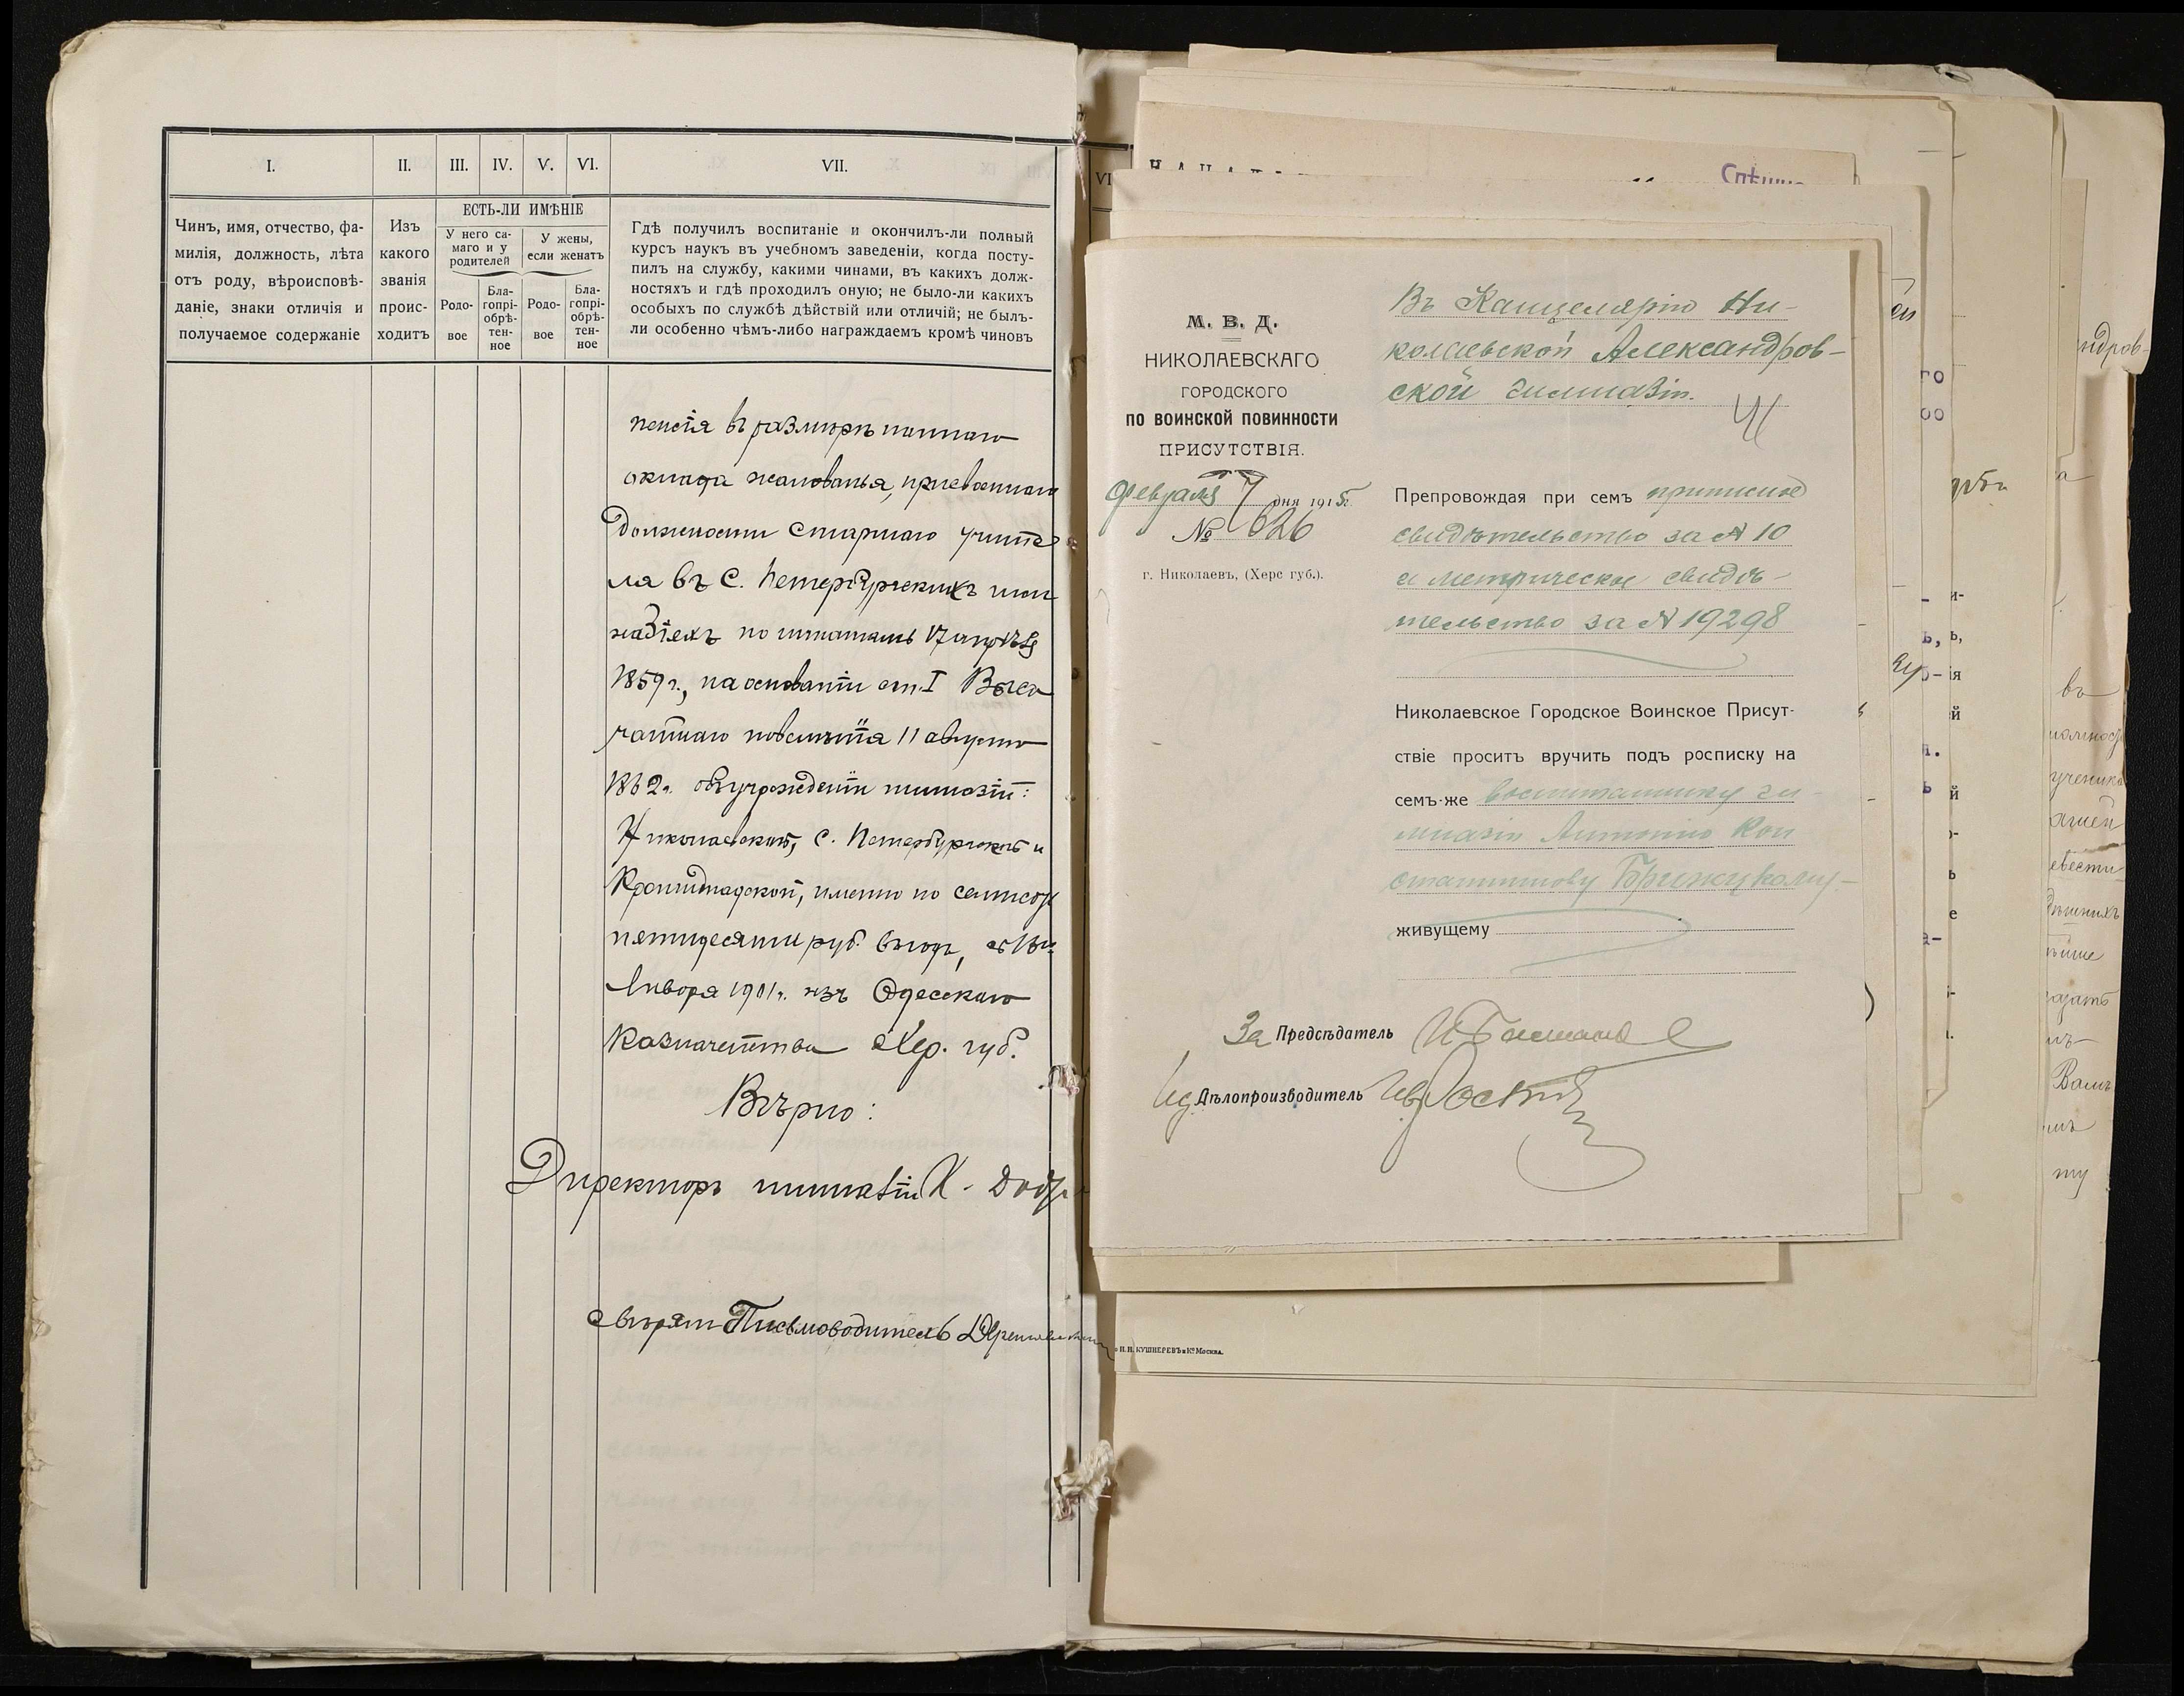 I. II. III. IV. V. VI. VII.
ЕСТЬ-ЛИ ИМѢНІЕ
Чинъ, имя, отчество, фа-
милія, должность, лѣта
отъ роду, вѣроисповѣ-
даніе, знаки отличія и
получаемое содержаніе
Изъ
какого
званія
проис-
ходитъ
У него са-
маго и у
родителей
У жены,
если женатъ
Родо-
вое
Бла-
гопрі-
обрѣ-
тен-
ное
Родо-
вое
Бла-
гопрі-
обрѣ-
тен-
ное
Гдѣ получилъ воспитаніе и окончилъ-ли полный
курсъ наукъ въ учебномъ заведеніи, когда посту-
пилъ на службу, какими чинами, въ какихъ долж-
ностяхъ и гдѣ проходилъ оную; не было-ли какихъ
особыхъ по службѣ дѣйствій или отличій; не былъ-
ли особенно чѣмъ-либо награждаемъ кромѣ чиновъ
пенсія въ размѣрѣ полнаго
оклада жалованья, присвоеннаго
должности старшаго учите
ля въ С. Петербургскихъ гим
назіяхъ по штатамъ 17 апрѣля
1859 г., на основаніи ст. I Высо
чайшаго повелѣнія 11 августа
1862 г. объ учрежденіи гимназій:
Николаевской, С. Петербургской и
Кронштадской, именно по семисотъ
пятидесяти руб. въ годъ, съ
Января 1901 г. изъ Одесскаго
Казначейства Хер. губ.
Вѣрно:
Директоръ гимназіи К.
Свѣрялъ Письмоводитель
Спѣшно
М. В. Д.
НИКОЛАЕВСКАГО
ГОРОДСКОГО
ПО ВОИНСКОЙ ПОВИННОСТИ
ПРИСУТСТВІЯ.
Февраля 7 дня 1915 г.
№ 626
г. Николаевъ, (Херс губ.).
Въ Канцелярію Ни-
колаевской Александров-
ской гимназіи.
Препровождая при семъ приписное
свидѣтельство за № 10
и метрическое свидѣ-
тельство за № 19298
Николаевское Городское Воинское Присут-
ствіе проситъ вручить подъ росписку на
семъ-же воспитаннику ги-
мназіи Антонію Кон
стантинову
живущему
За Предсѣдатель
Ид Дѣлопроизводитель
КУШНЕРЕВЪ и Кº Москва.